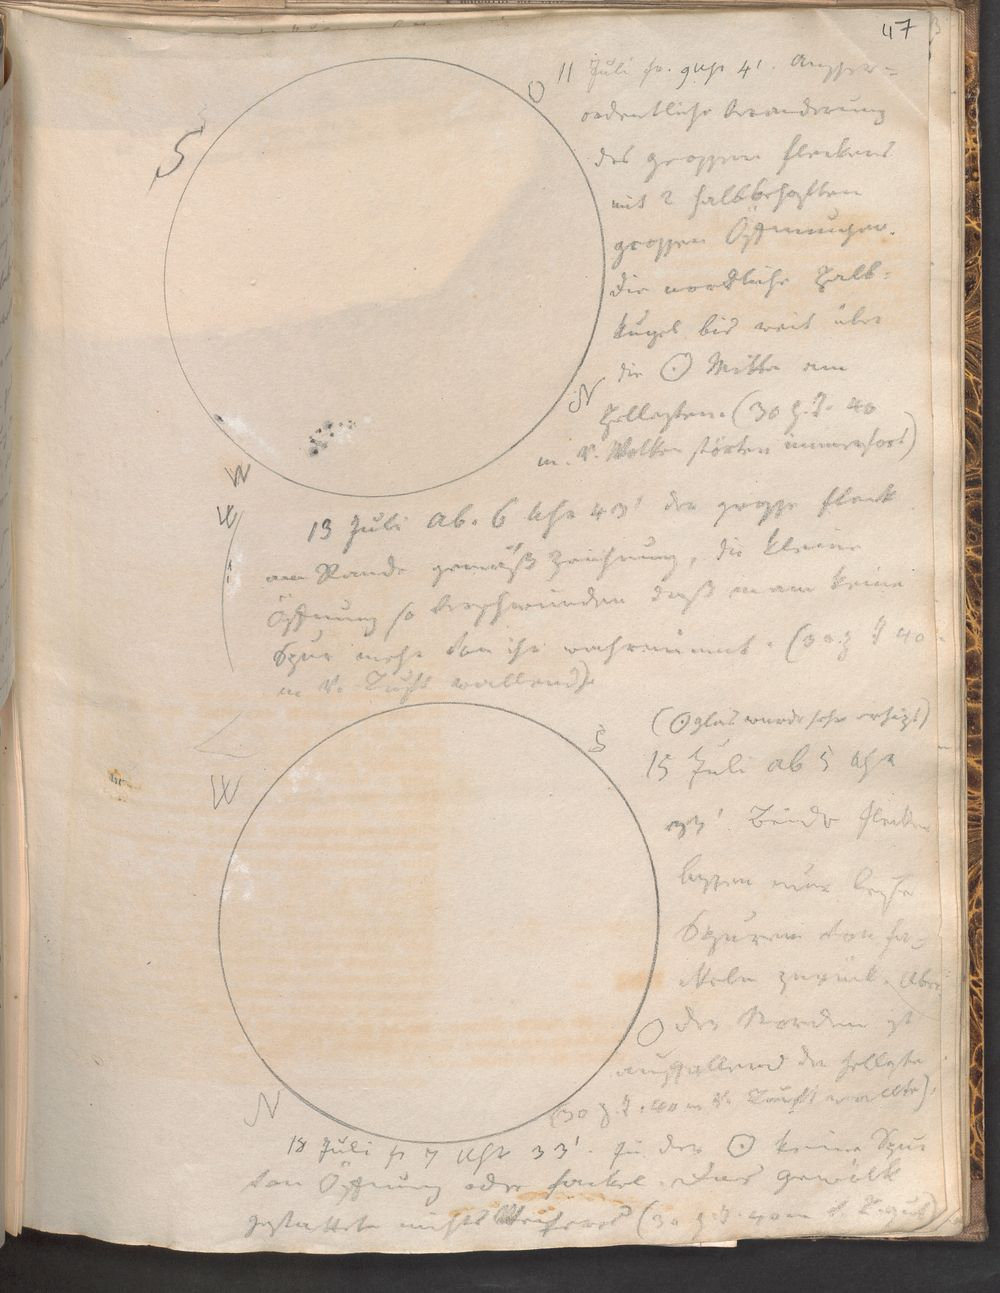 47
S
O
11 Juli fr. 9 Uhr 4'. Ausser=
ordentliche Veränderung
des grossen Fleckens
mit 2 halbbehoften
grossen Öffnungen.
die nordliche Halb=
kugel bis weit über
die ☉ Mitte am
hellesten. (30 z. F. 40
m. V. Wolken störten immerfort)
N
W
W
13 Juli Ab. 6 Uhr 43' der grosse Fleck
am Rande gemäß Zeichnung, die kleine
Öffnung so verschwunden daß man keine
Spur mehr von ihr wahrnimmt. (30 z F 40
m V. Luft wallend)
(☉glas wurde sehr erhizt)
S
15 Juli ab 5 Uhr
W
Beide Flecken
lassen nur
Spuren von Fa=
keln zurück. Aber
O
der Norden ist
auffallend der hellste
(30 z. F. 40 m V. Luft wallte).
N
18 Juli fr 7 Uhr 33'. In der ☉ keine Spur
von Öffnung oder Fackel. Das Gewölk
gestattete nichts (30 z. F. 40 m V. L. gut)